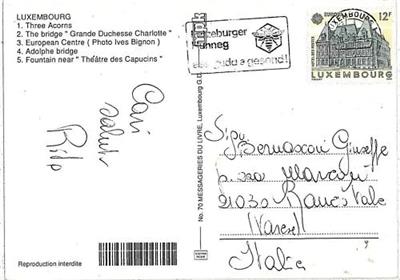 LUXEMBOURG
1. Three Acorns
2. The bridge "Grande Duchesse Charlotte"
3. European Centre ( Photo Ives Bignon )
4. Adolphe bridge
5. Fountain near "Théâtre des Capucins"
Cari
saluti
Reproduction interdite
No. 70 MESSAGERIES DU LIVRE, Luxembourg G.D.
gesond!
EUROPA
12F
LUXEMBOURG
Sig. Bernasconi Giuseppe
p.zza Marconi
21030
(Varese)
Italia